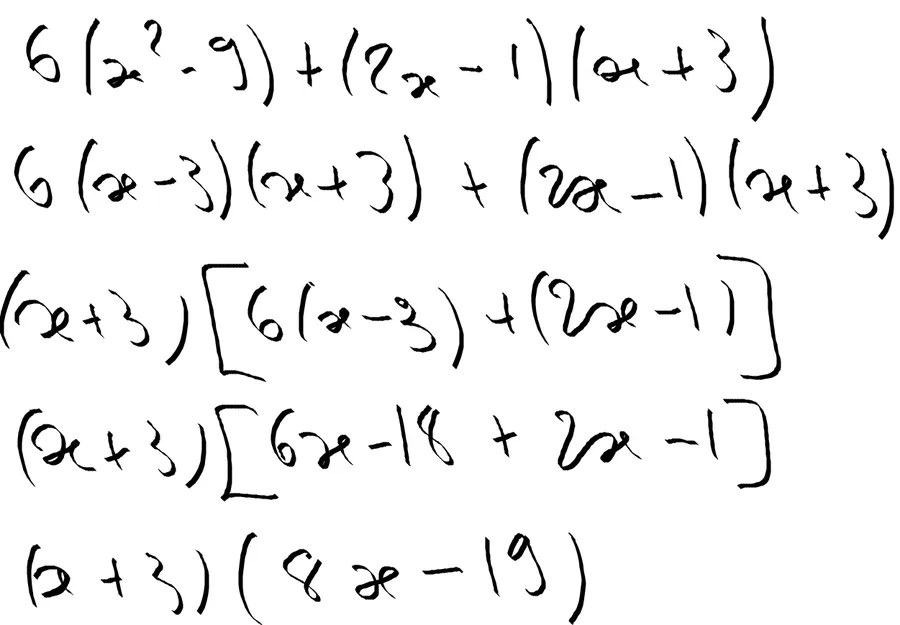 6(x² - 9) + (2x - 1)(x + 3)
6(x - 3)(x + 3) + (2x - 1)(x + 3)
(x + 3)[6(x - 3) + (2x - 1)]
(x + 3)[6x - 18 + 2x - 1]
(x + 3)(8x - 19)